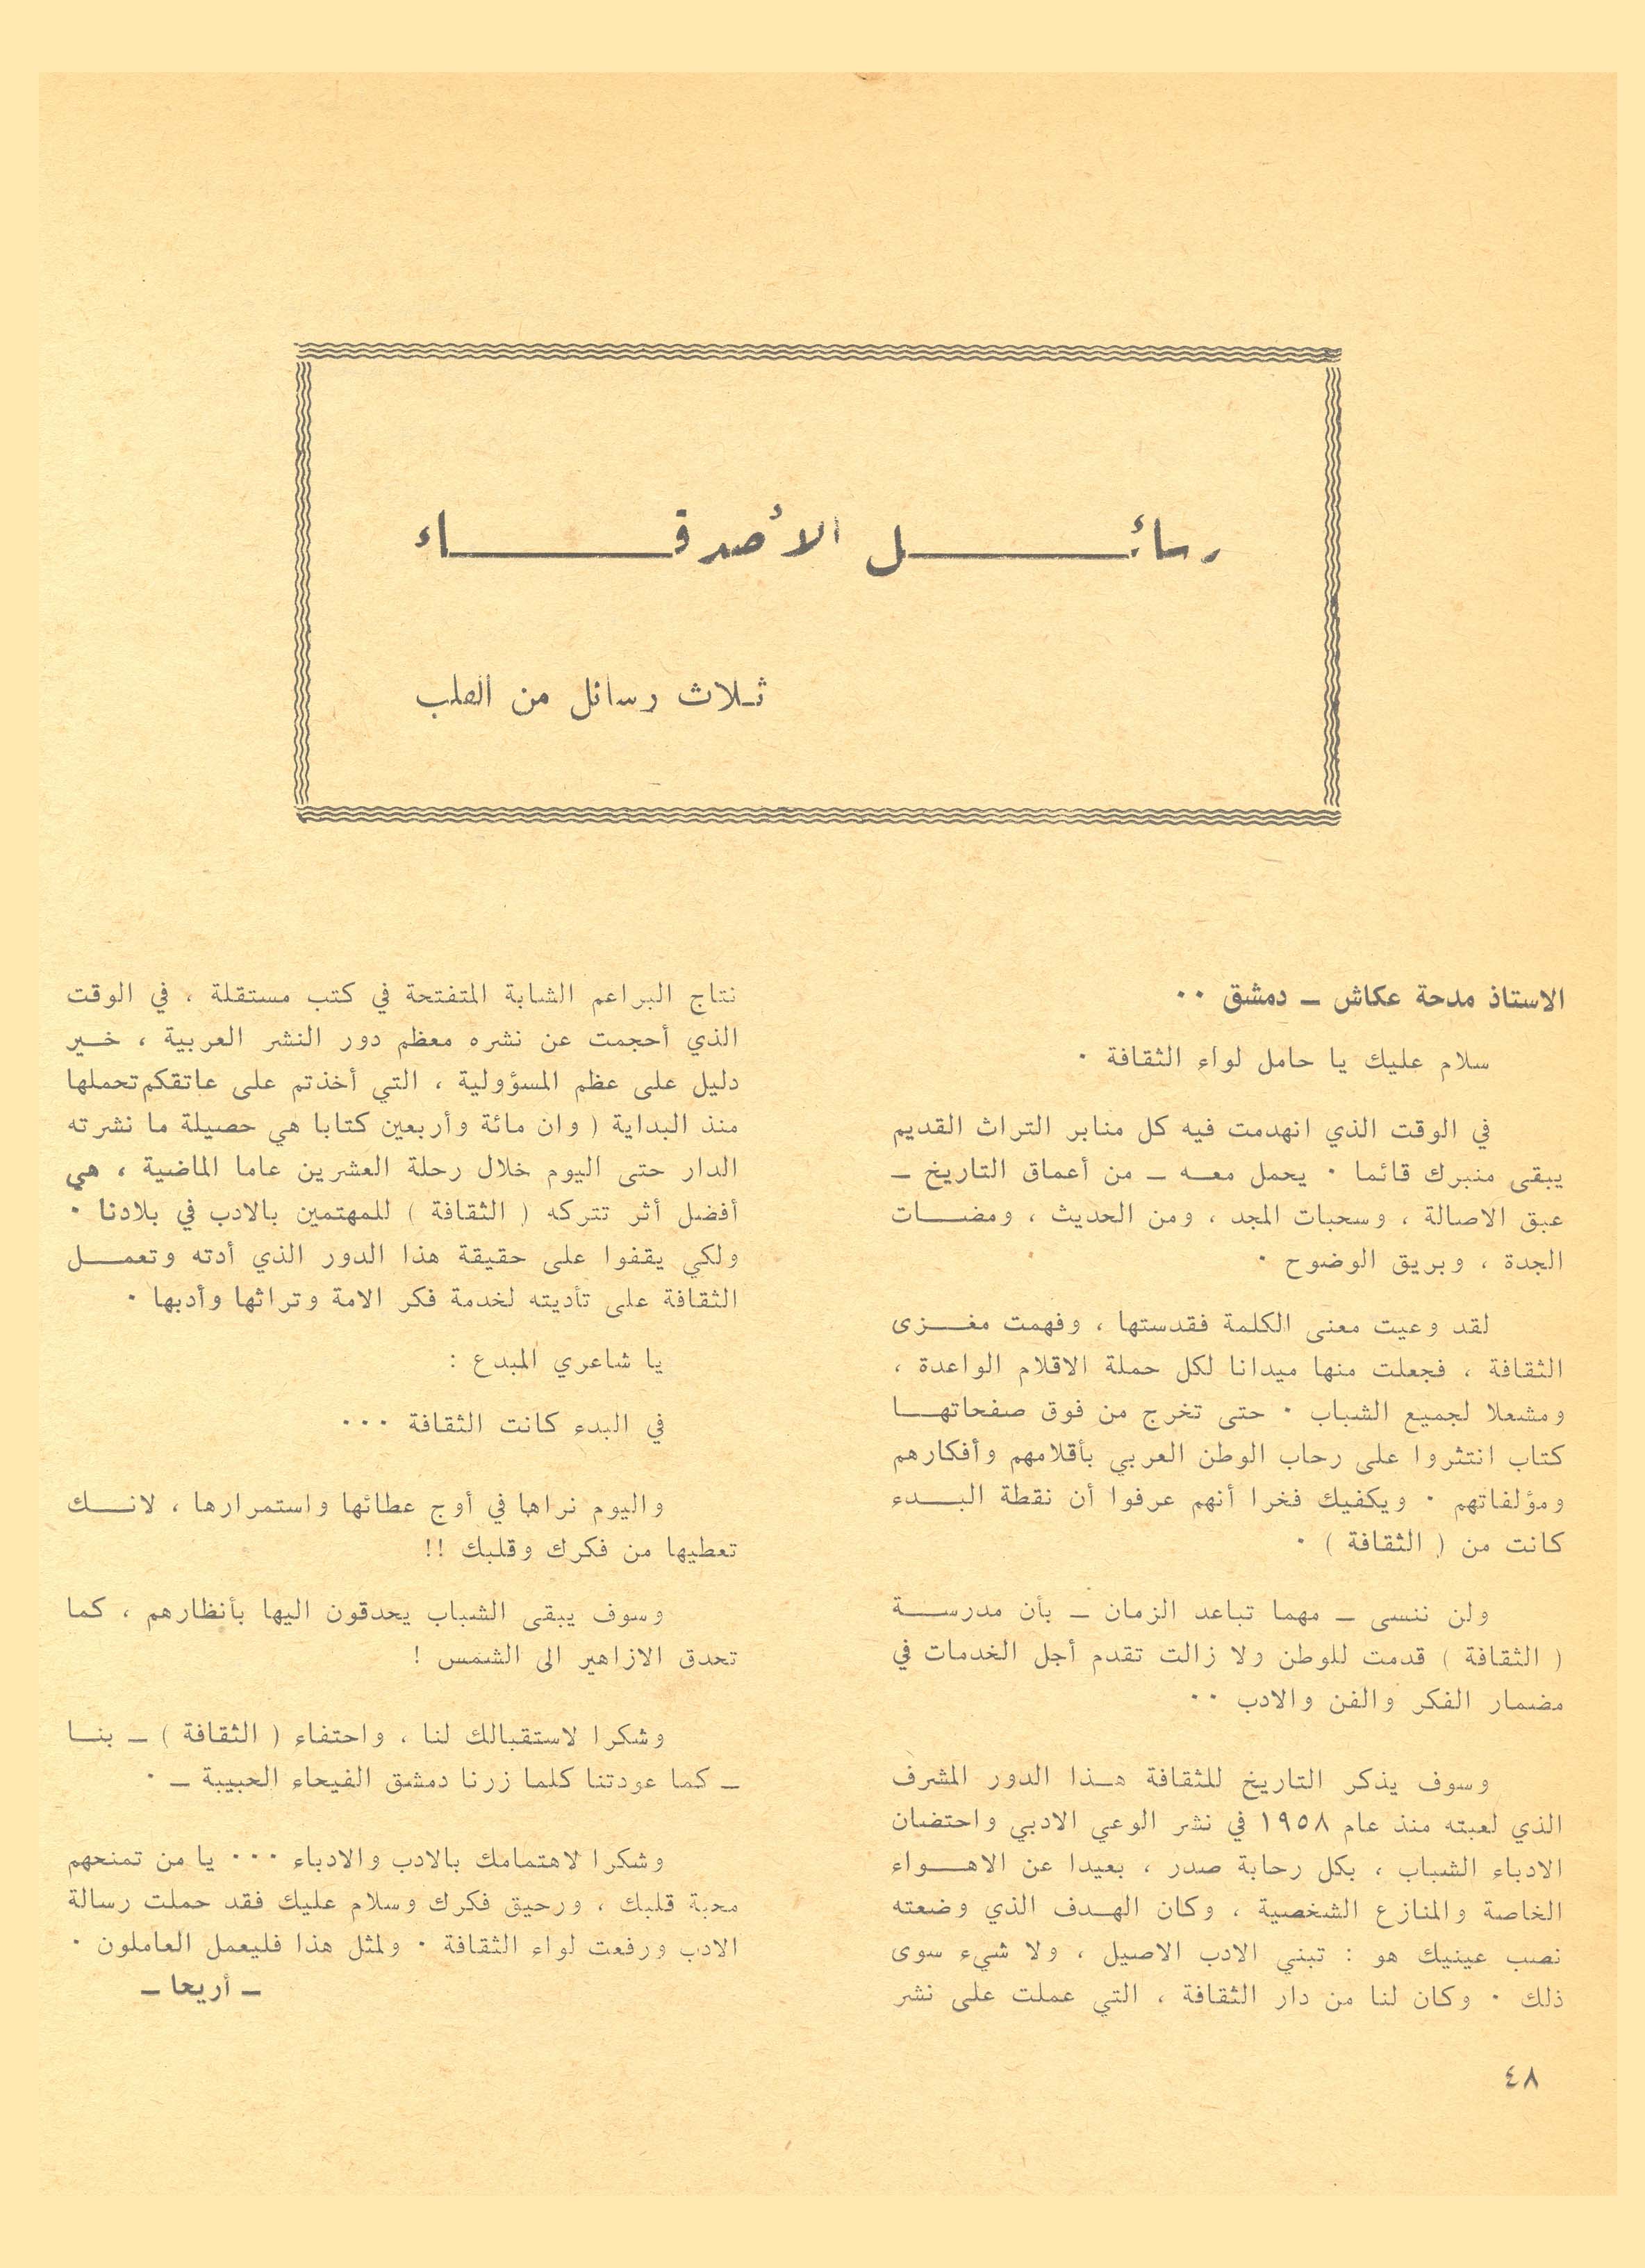 رسائل الأصدقاء
ثلاث رسائل من القلب
الاستاذ مدحة عكاش ــ دمشق ٠٠
سلام عليك يا حامل لواء الثقافة ٠
في الوقت الذي انهدمت فيه كل منابر التراث القديم
يبقى منبرك قائما ٠ يحمل معه ــ من أعماق التاريخ ــ
عبق الاصالة ، وسحبات المجد ، ومن الحديث ، ومضات
الجدة ، وبريق الوضوح ٠
لقد وعيت معنى الكلمة فقدستها ، وفهمت مغزى
الثقافة ، فجعلت منها ميدانا لكل حملة الاقلام الواعدة ،
ومشعلا لجميع الشباب ٠ حتى تخرج من فوق صفحاتها
كتاب انتثروا على رحاب الوطن العربي بأقلامهم وأفكارهم
ومؤلفاتهم ٠ ويكفيك فخرا أنهم عرفوا أن نقطة البدء
كانت من ( الثقافة ) ٠
ولن ننسى ــ مهما تباعد الزمان ــ بأن مدرسة
( الثقافة ) قدمت للوطن ولا زالت تقدم أجل الخدمات في
مضمار الفكر والفن والادب ٠٠
وسوف يذكر التاريخ للثقافة هذا الدور المشرف
الذي لعبته منذ عام ١٩٥٨ في نشر الوعي الادبي واحتضان
الادباء الشباب ، بكل رحابة صدر ، بعيدا عن الاهواء
الخاصة والمنازع الشخصية ، وكان الهدف الذي وضعته
نصب عينيك هو : تبني الادب الاصيل ، ولا شيء سوى
ذلك ٠ وكان لنا من دار الثقافة ، التي عملت على نشر
نتاج البراعم الشابة المتفتحة في كتب مستقلة ، في الوقت
الذي أحجمت عن نشره معظم دور النشر العربية ، خير
دليل على عظم المسؤولية ، التي أخذتم على عاتقكم تحملها
منذ البداية ( وان مائة وأربعين كتابا هي حصيلة ما نشرته
الدار حتى اليوم خلال رحلة العشرين عاما الماضية ، هي
أفضل أثر تتركه ( الثقافة ) للمهتمين بالادب في بلادنا ٠
ولكي يقفوا على حقيقة هذا الدور الذي أدته وتعمل
الثقافة على تأديته لخدمة فكر الامة وتراثها وأدبها ٠
يا شاعري المبدع :
في البدء كانت الثقافة ٠٠٠
واليوم نراها في أوج عطائها واستمرارها ، لانك
تعطيها من فكرك وقلبك !!
وسوف يبقى الشباب يحدقون اليها بأنظارهم ، كما
تحدق الازاهير الى الشمس !
وشكرا لاستقبالك لنا ، واحتفاء ( الثقافة ) ــ بنا
ــ كما عودتنا كلما زرنا دمشق الفيحاء الحبيبة ــ ٠
وشكرا لاهتمامك بالادب والادباء ٠٠٠ يا من تمنحهم
محبة قلبك ، ورحيق فكرك وسلام عليك فقد حملت رسالة
الادب ورفعت لواء الثقافة ٠ ولمثل هذا فليعمل العاملون ٠
ــ أريحا ــ
٤٨